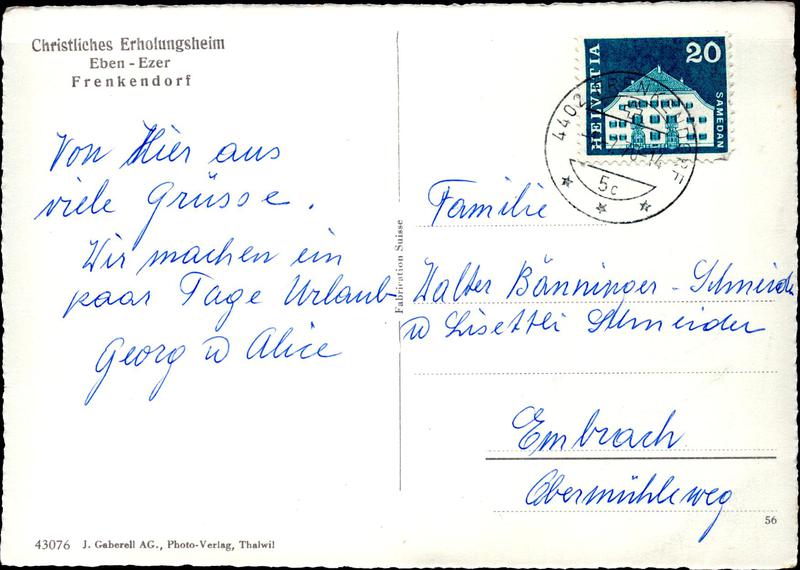 Christliches Erholungsheim
Eben - Ezer
Frenkendorf
Von Hier aus
viele Grüsse.
Wir machen ein
paar Tage Urlaub
Georg u Alice
43076 J. Gaberell AG., Photo-Verlag, Thalwil
Fabrication Suisse
HELVETIA
20
SAMEDAN
4402 FRENKENDORF
5c
Familie
Walter Bänninger - Schneider
u Lisettli Schneider
Embrach
Obermühleweg
56